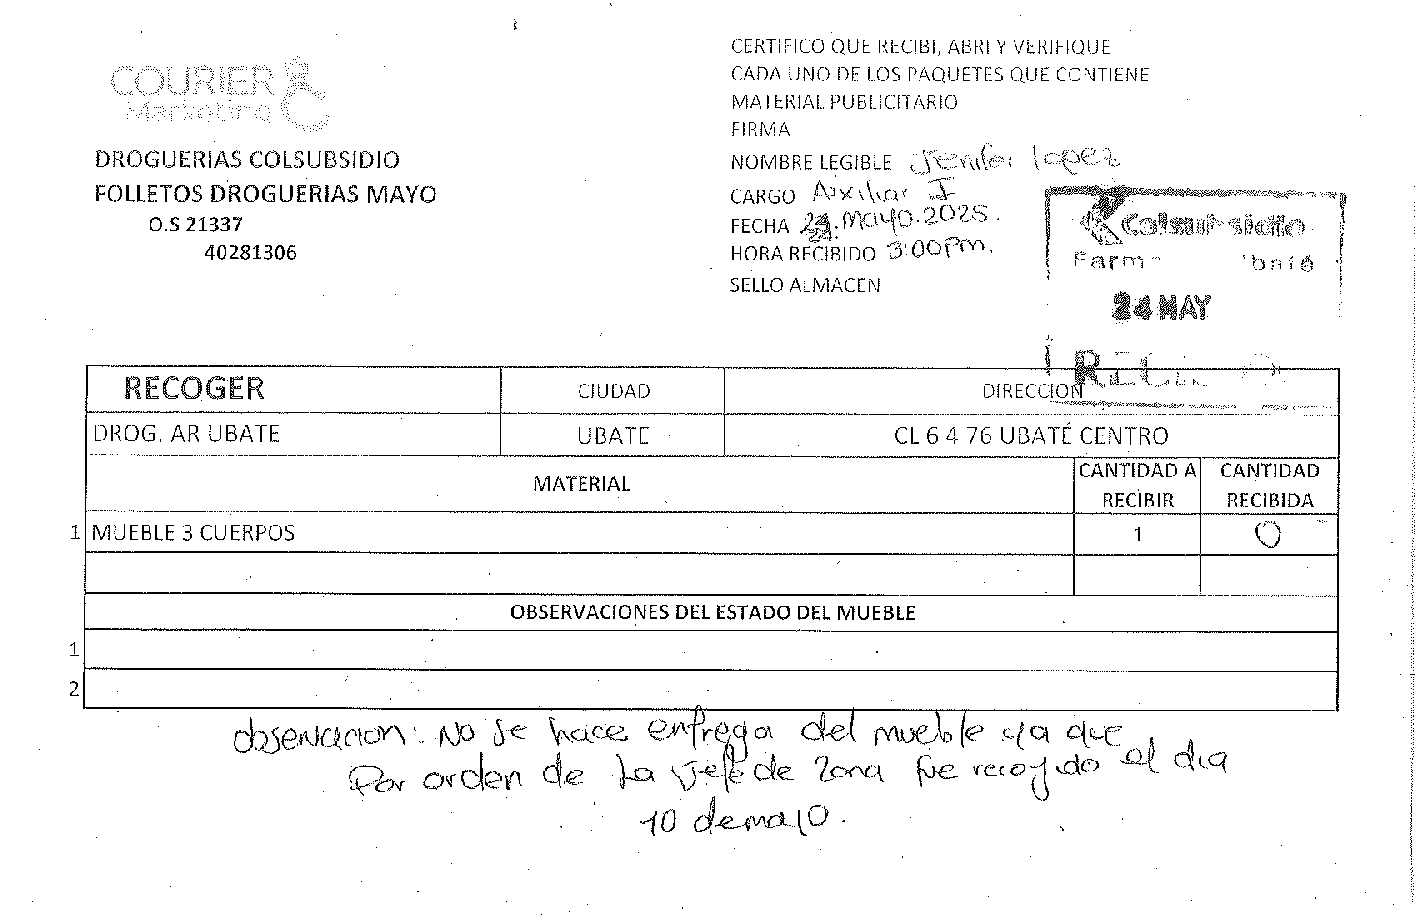 COURIER
Marketing
DROGUERIAS COLSUBSIDIO
FOLLETOS DROGUERIAS MAYO
O.S 21337
40281306
CERTIFICO QUE RECIBI, ABRI Y VERIFIQUE
CADA UNO DE LOS PAQUETES QUE CONTIENE
MATERIAL PUBLICITARIO
FIRMA
NOMBRE LEGIBLE Jenifer lopez
CARGO Auxiliar I
FECHA 24. Mayo. 2025.
HORA RECIBIDO 3:00pm.
SELLO ALMACEN
Colsubsidio
24 MAY
RECOGER CIUDAD DIRECCION
DROG. AR UBATE UBATE CL 6 4 76 UBATÉ CENTRO
MATERIAL CANTIDAD A RECIBIR CANTIDAD RECIBIDA
1 MUEBLE 3 CUERPOS 1 0
OBSERVACIONES DEL ESTADO DEL MUEBLE
1
2
observacion: No se hace entrega del mueble ya que
Por orden de La Jefe de Zona fue recogido el dia
10 de mayo.